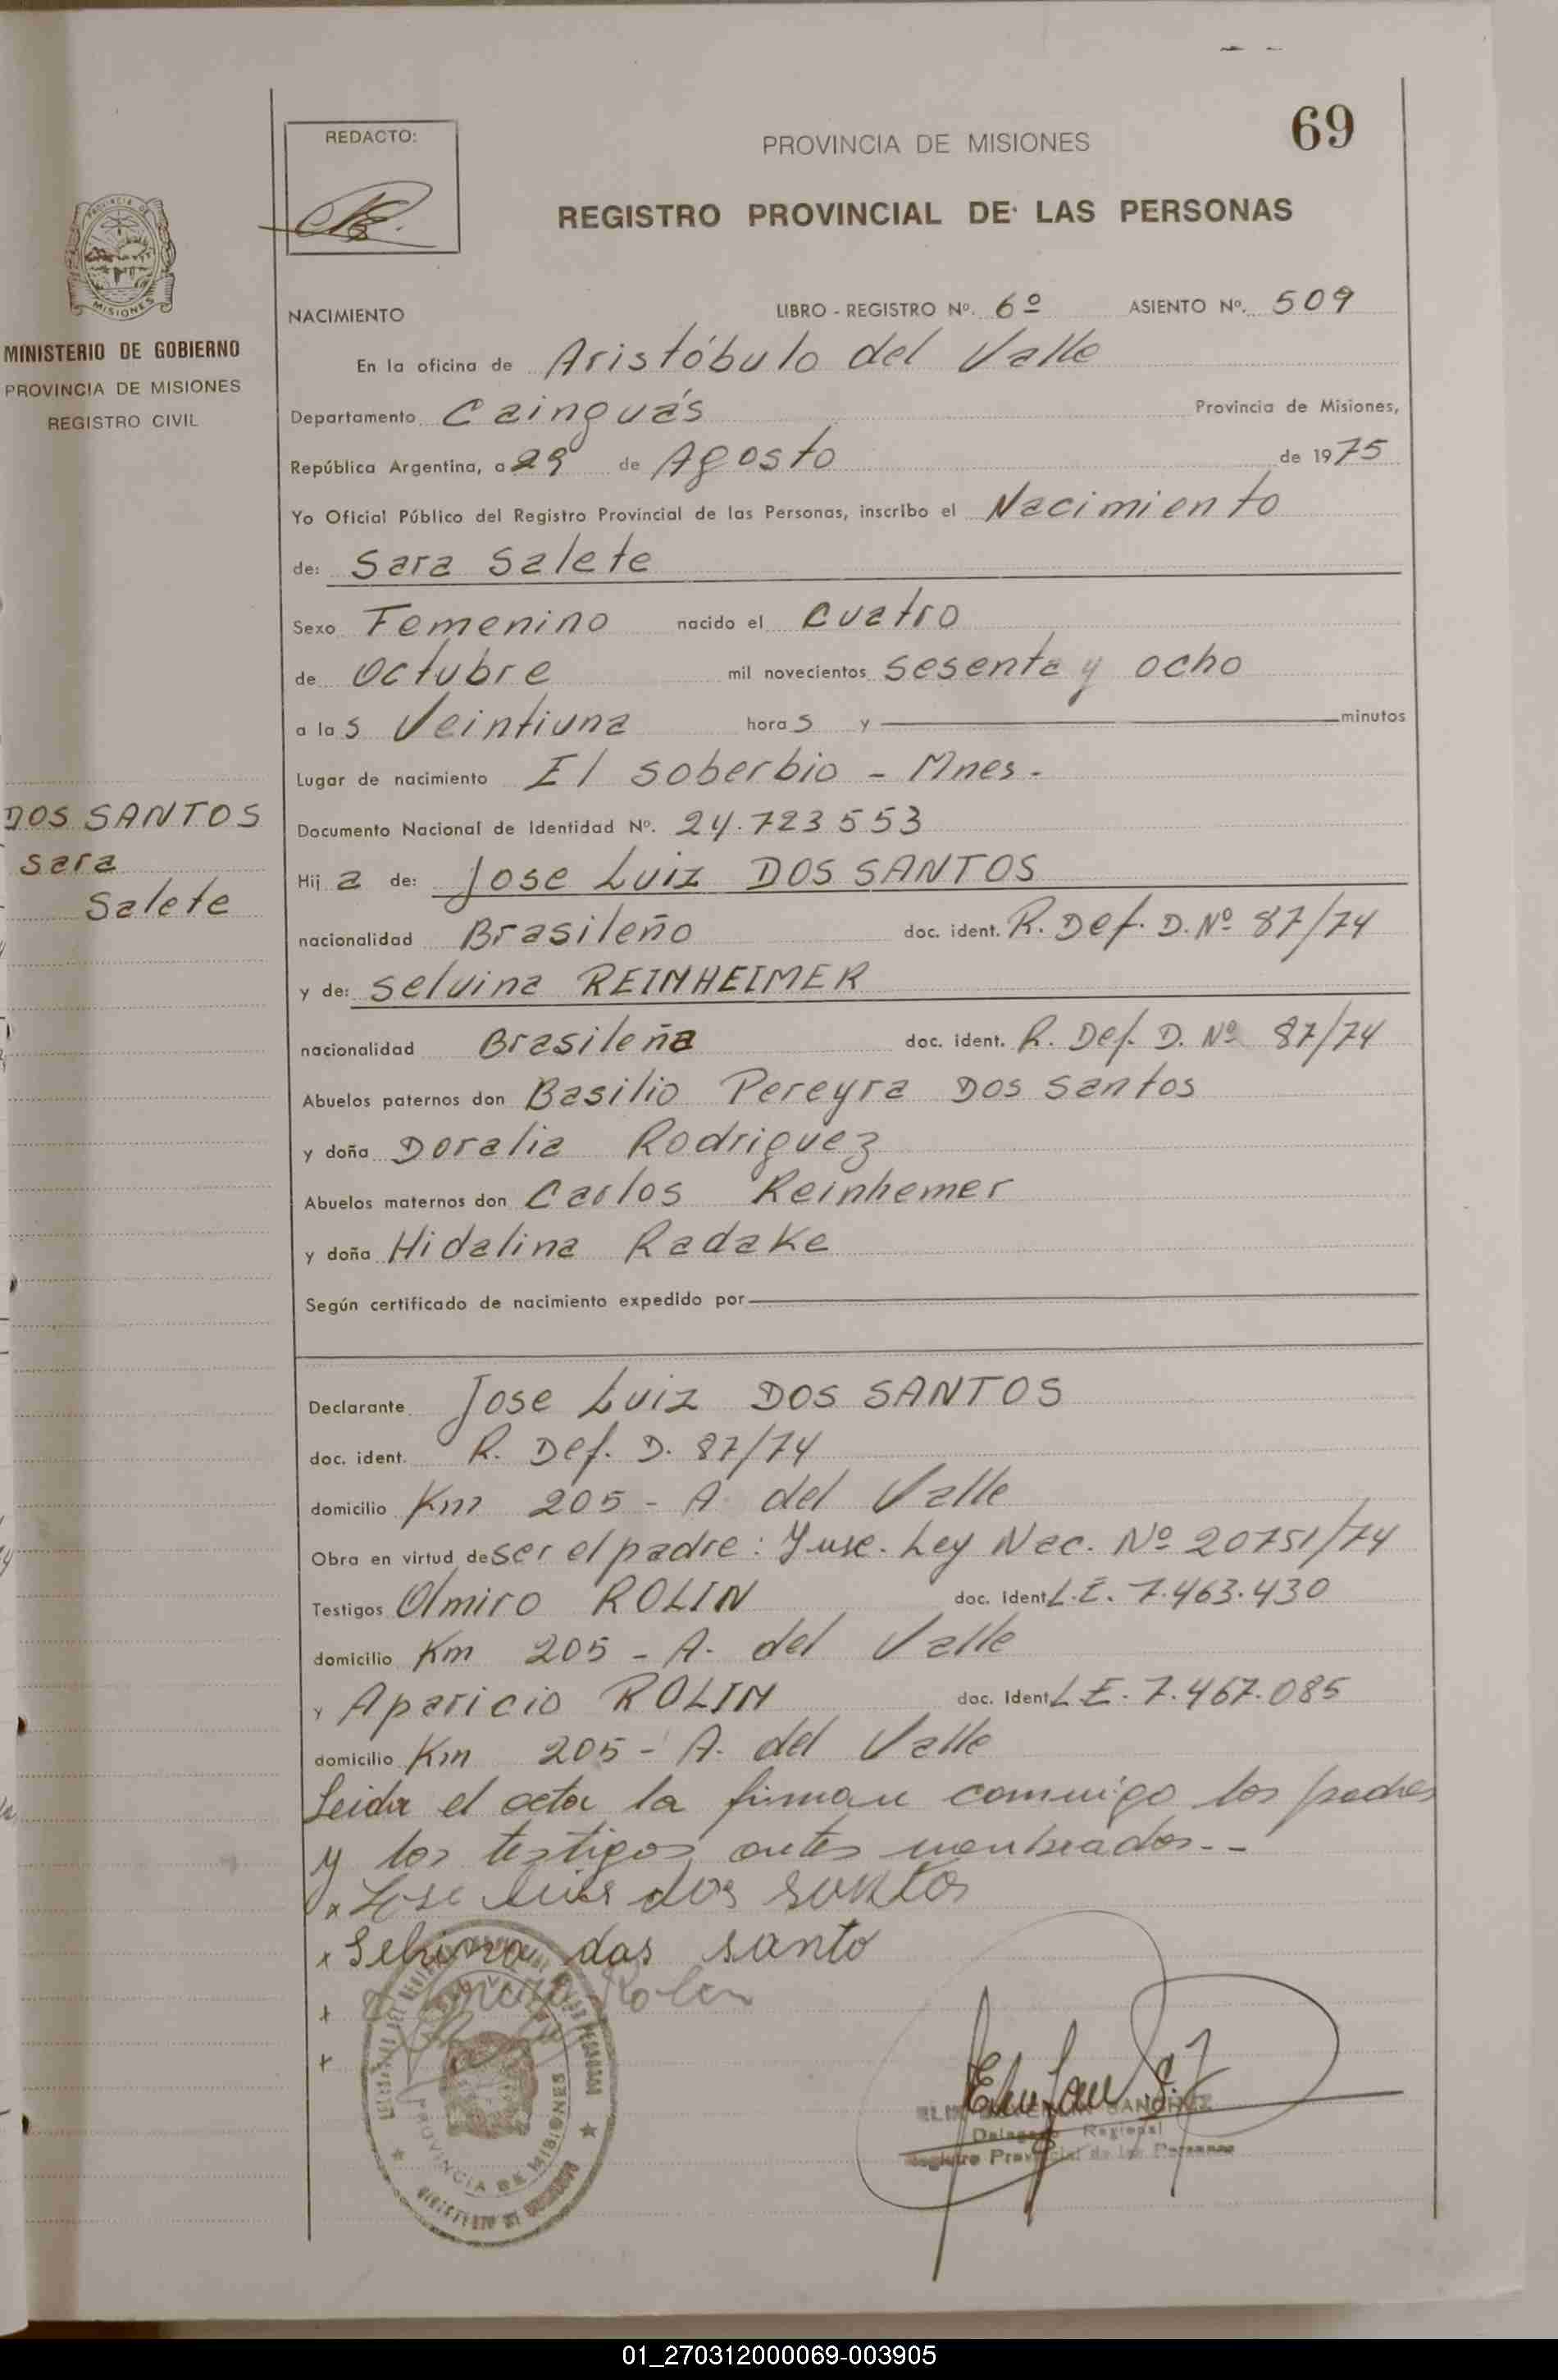 69
REDACTO:
PROVINCIA DE MISIONES
REGISTRO PROVINCIAL DE LAS PERSONAS
MISIONES
MINISTERIO DE GOBIERNO
PROVINCIA DE MISIONES
REGISTRO CIVIL
NACIMIENTO LIBRO - REGISTRO Nº. 6º ASIENTO Nº. 509
En la oficina de Aristóbulo del Valle
Departamento Cainguás Provincia de Misiones,
República Argentina, a 29 de Agosto de 1975
Yo Oficial Público del Registro Provincial de las Personas, inscribo el Nacimiento
de: Sara Salete
Sexo Femenino nacido el Cuatro
de Octubre mil novecientos sesenta y ocho
a las Veintiuna horas y minutos
Lugar de nacimiento El soberbio - Mnes.
DOS SANTOS
Sara
Salete
Documento Nacional de Identidad Nº. 24.723553
Hija de: Jose Luiz DOS SANTOS
nacionalidad Brasileño doc. ident. R. Def. D. Nº 87/74
y de: Selvina REINHEIMER
nacionalidad Brasileña doc. ident. R. Def. D. Nº 87/74
Abuelos paternos don Basilio Pereyra Dos Santos
y doña Doralia Rodriguez
Abuelos maternos don Carlos Reinhemer
y doña Hidalina Radake
Según certificado de nacimiento expedido por
Declarante Jose Luiz DOS SANTOS
doc. ident. R. Def. D. 87/74
domicilio Km 205 - A. del Valle
Obra en virtud de ser el padre: Ley Nac. Nº 20751/74
Testigos Olmiro ROLIN doc. Ident L.E. 7.463.430
domicilio Km 205 - A. del Valle
y Aparicio ROLIN doc. Ident L.E. 7.467.085
domicilio Km 205 - A. del Valle
Leida el acta la firman conmigo los padres
y los testigos antes nombrados.--
x Jose luis dos santos
x Selvina dos santo
x Rolin
x
PROVINCIA DE MISIONES
SANCHEZ
Delegado Regional
Registro Provincial de las Personas
01_270312000069-003905